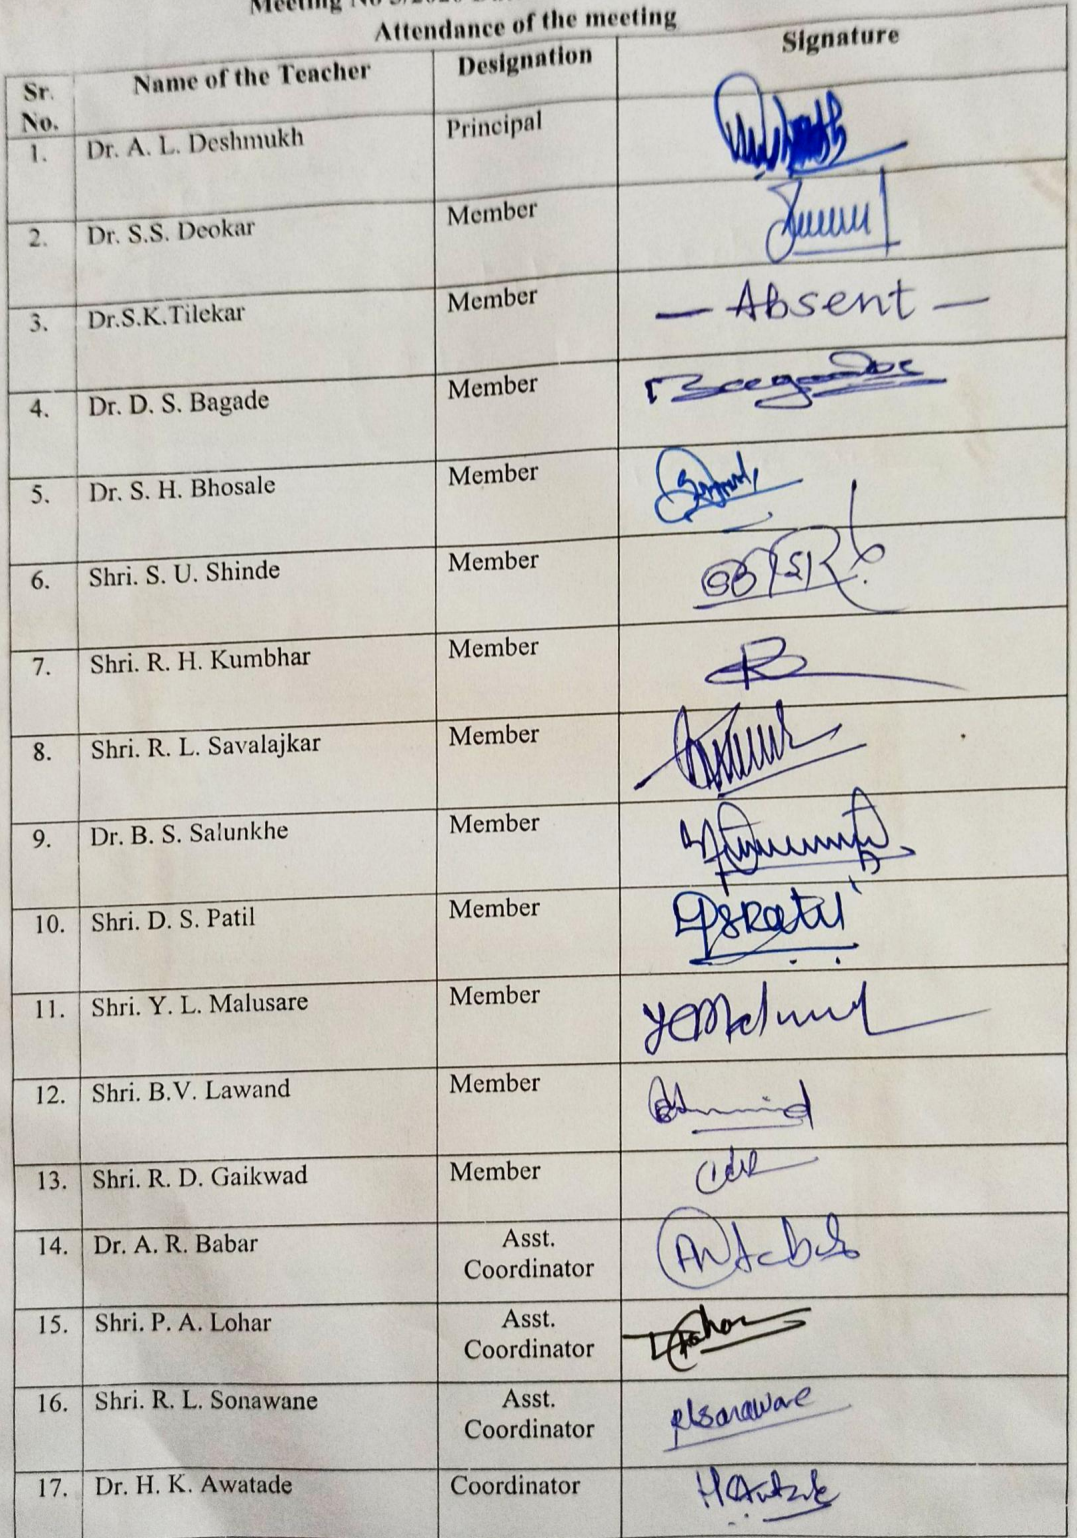 Meeting No
Attendance of the meeting
Sr. No. Name of the Teacher Designation Signature
1. Dr. A. L. Deshmukh Principal
2. Dr. S.S. Deokar Member
3. Dr.S.K.Tilekar Member — Absent —
4. Dr. D. S. Bagade Member
5. Dr. S. H. Bhosale Member
6. Shri. S. U. Shinde Member
7. Shri. R. H. Kumbhar Member
8. Shri. R. L. Savalajkar Member
9. Dr. B. S. Salunkhe Member
10. Shri. D. S. Patil Member DSPatil
11. Shri. Y. L. Malusare Member
12. Shri. B.V. Lawand Member
13. Shri. R. D. Gaikwad Member
14. Dr. A. R. Babar Asst. Coordinator
15. Shri. P. A. Lohar Asst. Coordinator
16. Shri. R. L. Sonawane Asst. Coordinator
17. Dr. H. K. Awatade Coordinator